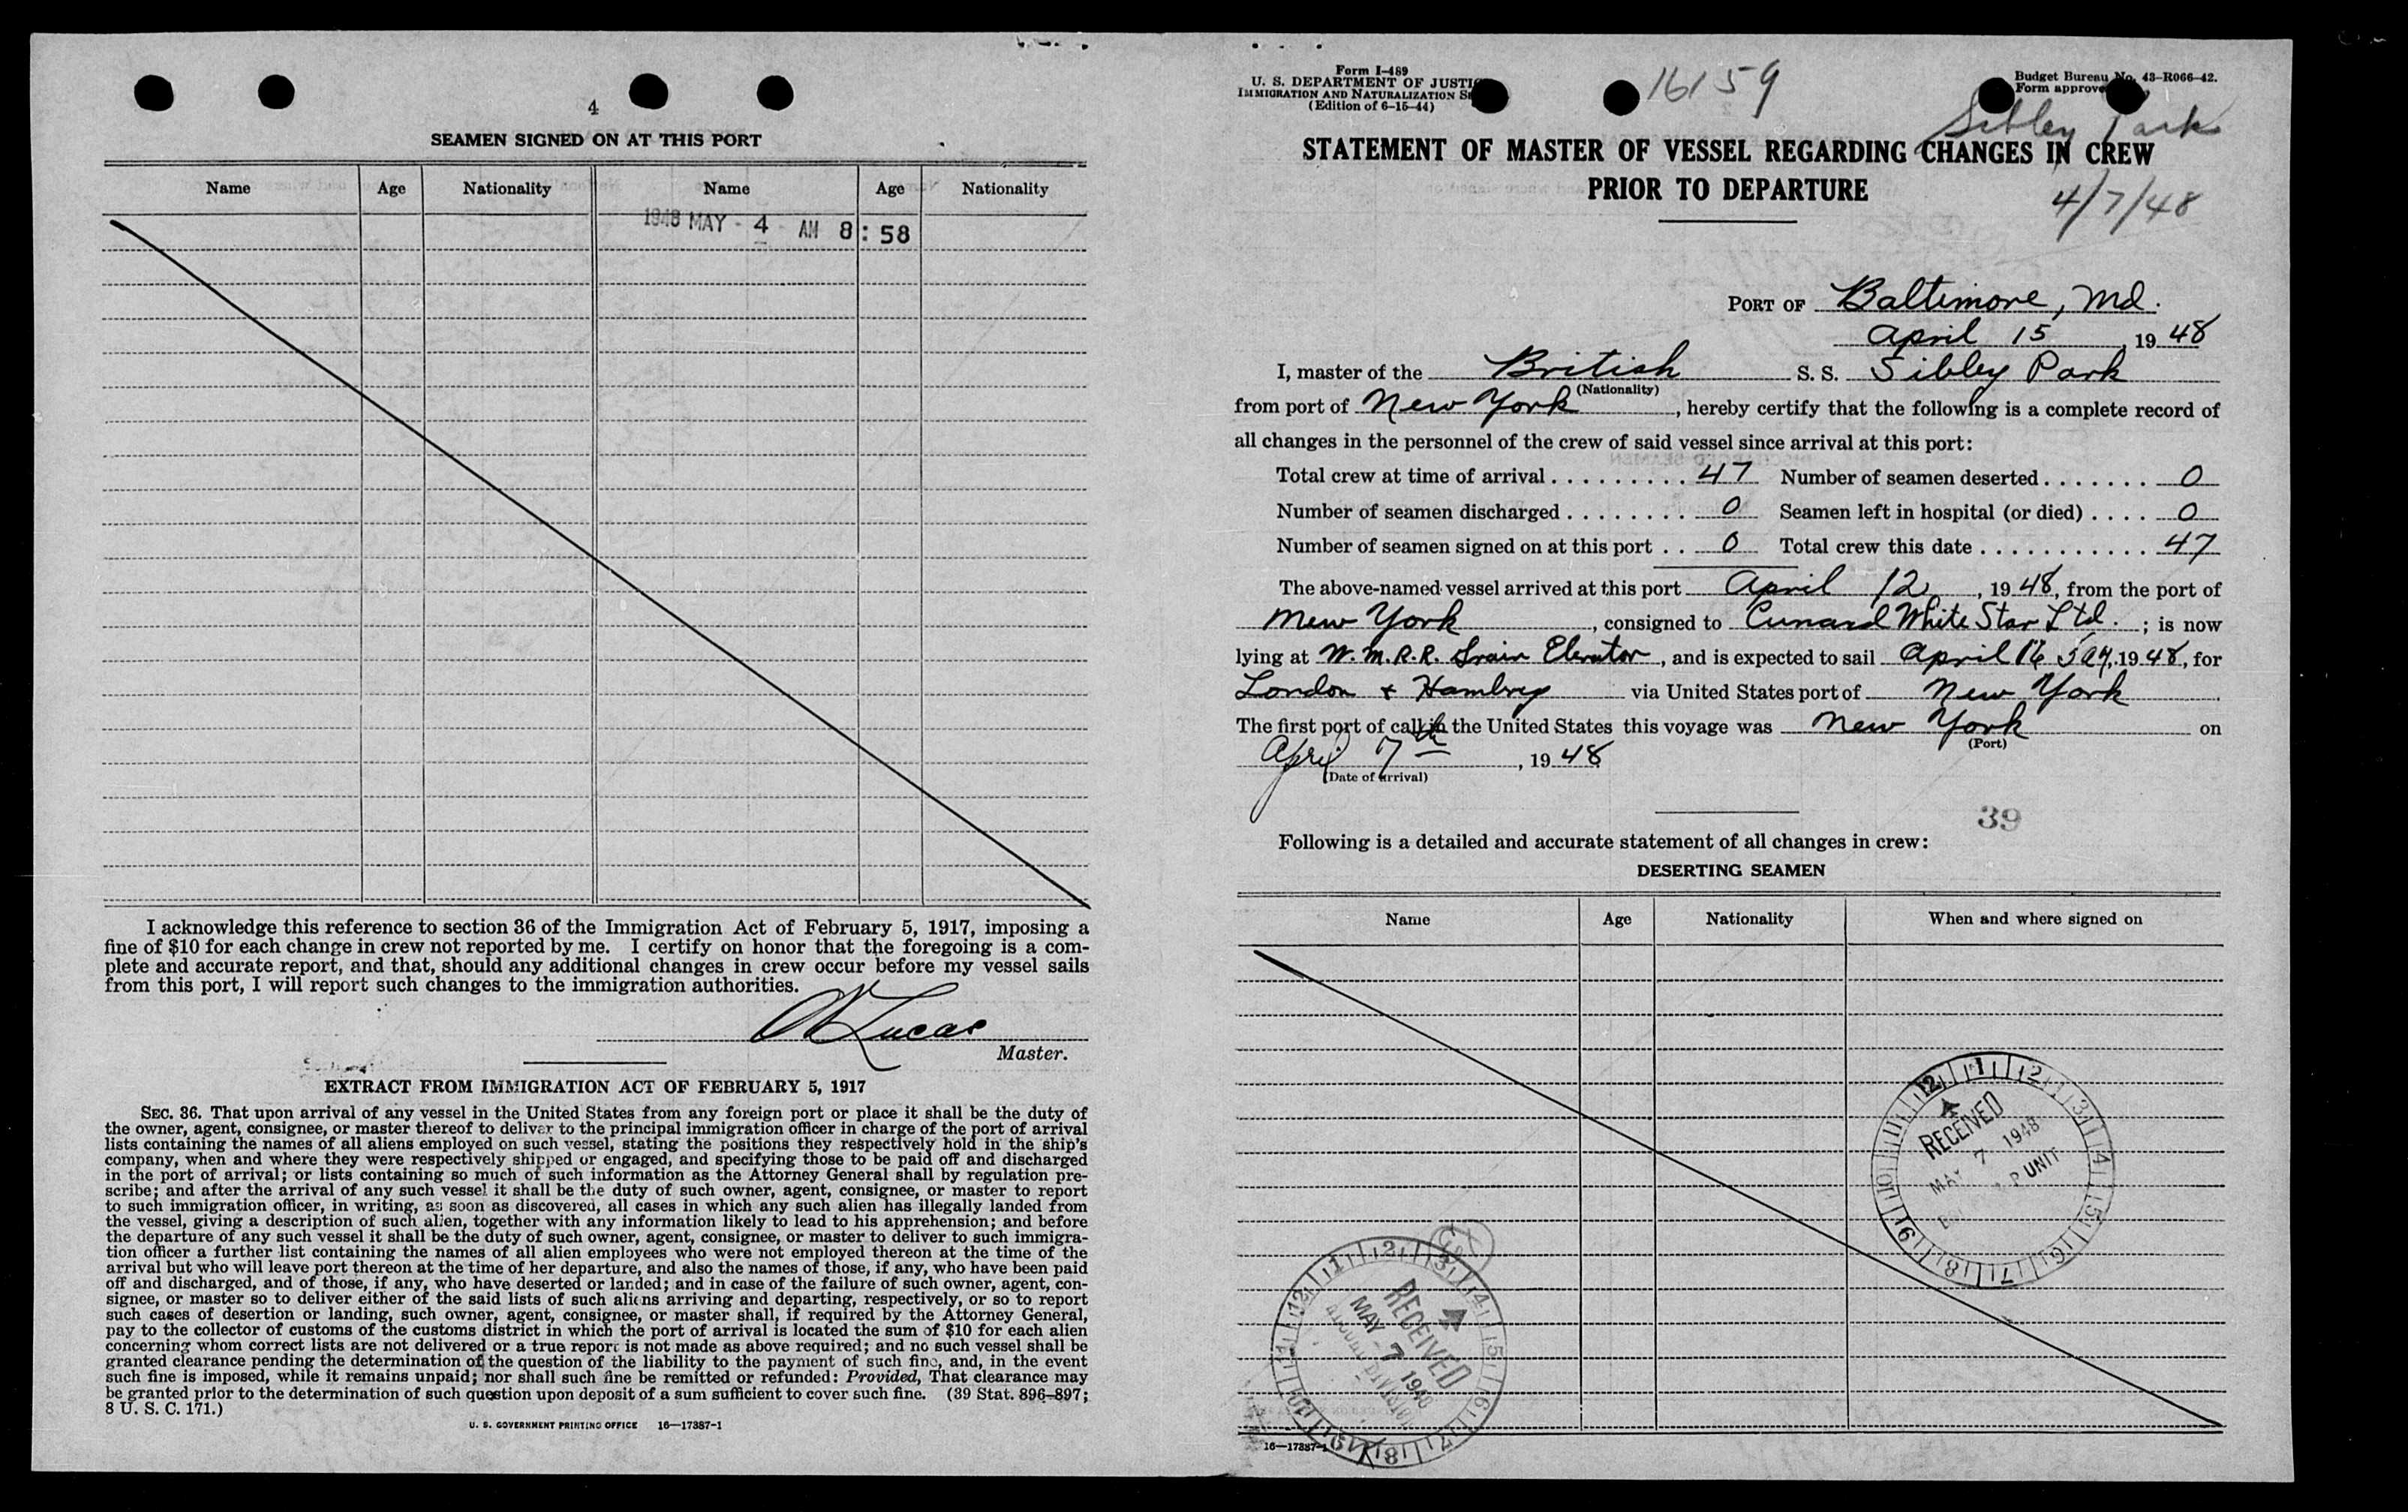 4
SEAMEN SIGNED ON AT THIS PORT
Name Age Nationality Name Age Nationality
1948 MAY - 4 AM 8: 58
I acknowledge this reference to section 36 of the Immigration Act of February 5, 1917, imposing a
fine of $10 for each change in crew not reported by me. I certify on honor that the foregoing is a com-
plete and accurate report, and that, should any additional changes in crew occur before my vessel sails
from this port, I will report such changes to the immigration authorities.
Lucas
Master.
EXTRACT FROM IMMIGRATION ACT OF FEBRUARY 5, 1917
SEC. 36. That upon arrival of any vessel in the United States from any foreign port or place it shall be the duty of
the owner, agent, consignee, or master thereof to deliver to the principal immigration officer in charge of the port of arrival
lists containing the names of all aliens employed on such vessel, stating the positions they respectively hold in the ship's
company, when and where they were respectively shipped or engaged, and specifying those to be paid off and discharged
in the port of arrival; or lists containing so much of such information as the Attorney General shall by regulation pre-
scribe; and after the arrival of any such vessel it shall be the duty of such owner, agent, consignee, or master to report
to such immigration officer, in writing, as soon as discovered, all cases in which any such alien has illegally landed from
the vessel, giving a description of such alien, together with any information likely to lead to his apprehension; and before
the departure of any such vessel it shall be the duty of such owner, agent, consignee, or master to deliver to such immigra-
tion officer a further list containing the names of all alien employees who were not employed thereon at the time of the
arrival but who will leave port thereon at the time of her departure, and also the names of those, if any, who have been paid
off and discharged, and of those, if any, who have deserted or landed; and in case of the failure of such owner, agent, con-
signee, or master so to deliver either of the said lists of such aliens arriving and departing, respectively, or so to report
such cases of desertion or landing, such owner, agent, consignee, or master shall, if required by the Attorney General,
pay to the collector of customs of the customs district in which the port of arrival is located the sum of $10 for each alien
concerning whom correct lists are not delivered or a true report is not made as above required; and no such vessel shall be
granted clearance pending the determination of the question of the liability to the payment of such fine, and, in the event
such fine is imposed, while it remains unpaid; nor shall such fine be remitted or refunded: Provided, That clearance may
be granted prior to the determination of such question upon deposit of a sum sufficient to cover such fine. (39 Stat. 896–897;
8 U. S. C. 171.)
U. S. GOVERNMENT PRINTING OFFICE 16—17387-1
Form I-489
U. S. DEPARTMENT OF JUSTIC
IMMIGRATION AND NATURALIZATION S
(Edition of 6-15-44)
16159
Budget Bureau No. 43-R066-42.
Form approve
Sibley Park
STATEMENT OF MASTER OF VESSEL REGARDING CHANGES IN CREW
PRIOR TO DEPARTURE
4/7/48
PORT OF Baltimore, Md.
April 15, 1948
I, master of the British S. S. Sibley Park
(Nationality)
from port of New York, hereby certify that the following is a complete record of
all changes in the personnel of the crew of said vessel since arrival at this port:
Total crew at time of arrival . . . . . . . . . 47 Number of seamen deserted . . . . . . . 0
Number of seamen discharged . . . . . . . . 0 Seamen left in hospital (or died) . . . . 0
Number of seamen signed on at this port . . 0 Total crew this date . . . . . . . . . . . 47
The above-named vessel arrived at this port April 12, 1948, from the port of
New York, consigned to Cunard White Star Ltd.; is now
lying at W.M.R.R. Grain Elevator, and is expected to sail April 16, 1948, for
London + Hambrg via United States port of New York
The first port of call in the United States this voyage was New York on
(Port)
April 7th, 1948
(Date of arrival)
39
Following is a detailed and accurate statement of all changes in crew:
DESERTING SEAMEN
Name Age Nationality When and where signed on
12 1 2 3 4 5 6 7 8 9 10 11
RECEIVED
MAY 7 1948
P UNIT
12 1 2 3 4 5 6 7 8 9 10 11
RECEIVED
MAY - 7 1948
16—17387-1